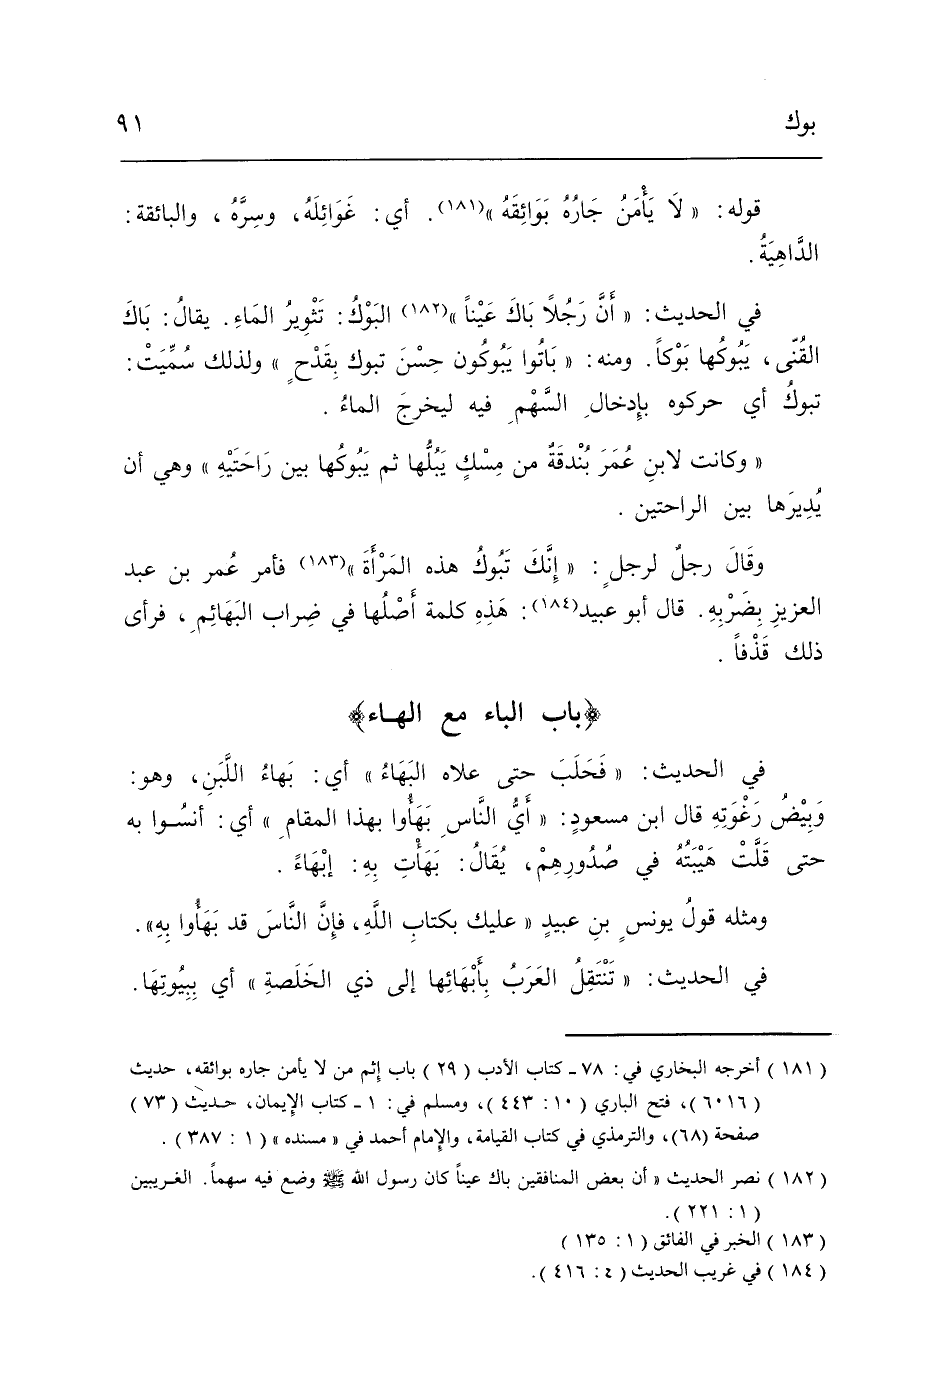 بوك ٩١
قوله: « لَا يَأْمَنُ جَارُهُ بَوَائِقَهُ »(١٨١). أي: غَوَائِلَهُ، وسِرَّهُ ، والبائقة:
الدَّاهِيَةُ .
في الحديث: « أَنَّ رَجُلاً بَاكَ عَيْناً »(١٨٢) البَوْكُ: تَثْوِيرُ المَاءِ. يقالُ: بَاكَ
القُنّى، يَبُوكُها بَوْكاً. ومنه: « بَاتُوا يَبُوكُون حِسْنَ تبوك بِقَدْحٍ » ولذلك سُمِّيَتْ:
تبوكُ أي حركوه بِإِدخالِ السَّهْمِ فيه ليخرجَ الماءُ .
« وكانت لابنِ عُمَرَ بُنْدقَةٌ من مِسْكٍ يَبُلُّها ثم يَبُوكُها بين رَاحَتَيْهِ » وهي أن
يُدِيرَها بين الراحتين .
وقَالَ رجلٌ لرجلٍ: « إِنَّكَ تَبُوكُ هذه المَرْأَةَ »(١٨٣) فأمر عُمر بن عبد
العزيزِ بِضَرْبِهِ. قال أبو عبيد(١٨٤): هَذِهِ كلمة أَصْلُها في ضِراب البَهَائِمِ، فرأى
ذلك قَذْفاً .
﴿باب الباء مع الهاء﴾
في الحديث: « فَحَلَبَ حتى علاه البَهَاءُ » أي: بَهاءُ اللَّبَنِ، وهو:
وَبِيْضُ رَغْوَتِهِ قال ابن مسعودٍ: « أَيُّ النَّاسِ بَهَأُوا بهذا المقامِ » أي: أنسُوا به
حتى قَلَّتْ هَيْبَتُهُ في صُدُورِهِمْ، يُقَالُ: بَهَأْتِ بِهِ: إبْهَاءً .
ومثله قولُ يونسٍ بنِ عبيدٍ « عليك بكتابِ اللَّهِ، فإِنَّ النَّاسَ قد بَهَأُوا بِهِ».
في الحديث: « تَنْتَقِلُ العَرَبُ بِأَبْهَائِها إلى ذي الخَلَصةِ » أي بِبِيُوتِهَا.
( ١٨١ ) أخرجه البخاري في: ٧٨ ـ كتاب الأدب ( ٢٩ ) باب إثم من لا يأمن جاره بوائقه، حديث
( ٦٠١٦ )، فتح الباري ( ١٠: ٤٤٣ )، ومسلم في: ١ ـ كتاب الإيمان، حديث ( ٧٣ )
صفحة (٦٨)، والترمذي في كتاب القيامة، والإمام أحمد في « مسنده » ( ١ : ٣٨٧ ) .
( ١٨٢ ) نصر الحديث « أن بعض المنافقين باك عيناً كان رسول الله ﷺ وضع فيه سهماً. الغريبين
( ١: ٢٢١ ).
( ١٨٣ ) الخبر في الفائق ( ١: ١٣٥ )
( ١٨٤ ) في غريب الحديث ( ٤: ٤١٦ ).